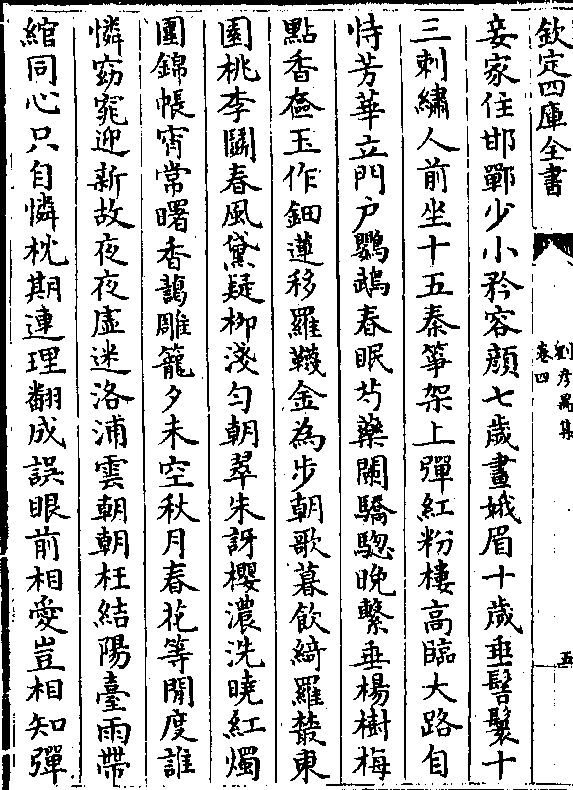 欽定四庫全書
劉彦昺集
卷四
五
妾家住邯鄲少小矜容顔七歲畫娥眉十歲垂髫鬟十
三刺繡人前坐十五秦箏架上彈紅粉樓高臨大路自
恃芳華立門户鸚鵡春眠芍藥闌驕驄晩繫垂楊樹梅
點香奩玉作鈿蓮移羅韈金為步朝歌暮飲綺羅叢東
園桃李鬭春風黛疑柳淺勻朝翠朱訝櫻濃洗曉紅燭
圍錦帳宵常曙香藹雕籠夕未空秋月春花等閒度誰
憐窈窕迎新故夜夜虛迷洛浦雲朝朝枉結陽臺雨帶
綰同心只自憐枕期連理翻成誤眼前相愛豈相知彈